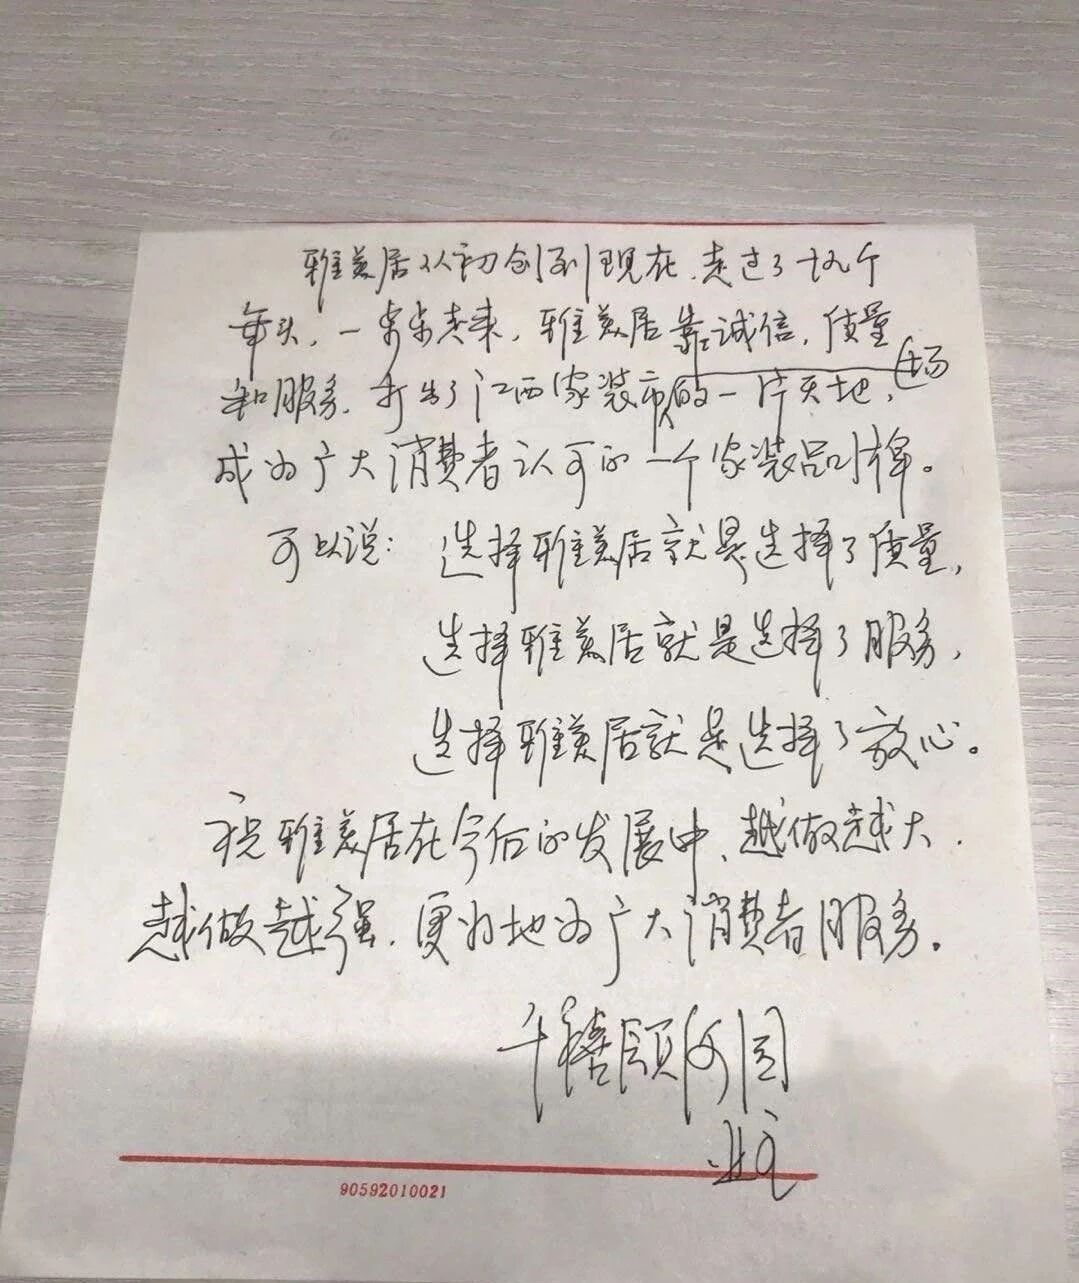 雅美居从初创到现在，走过了十九个
年头，一步步走来，雅美居靠诚信，质量
和服务，打出了江西家装市场的一片天地，
成为广大消费者认可的一个家装品牌。
可以说：选择雅美居就是选择了质量，
选择雅美居就是选择了服务，
选择雅美居就是选择了放心。
祝雅美居在今后的发展中，越做越大，
越做越强，更好地为广大消费者服务。
千禧颐和园
业主
90592010021